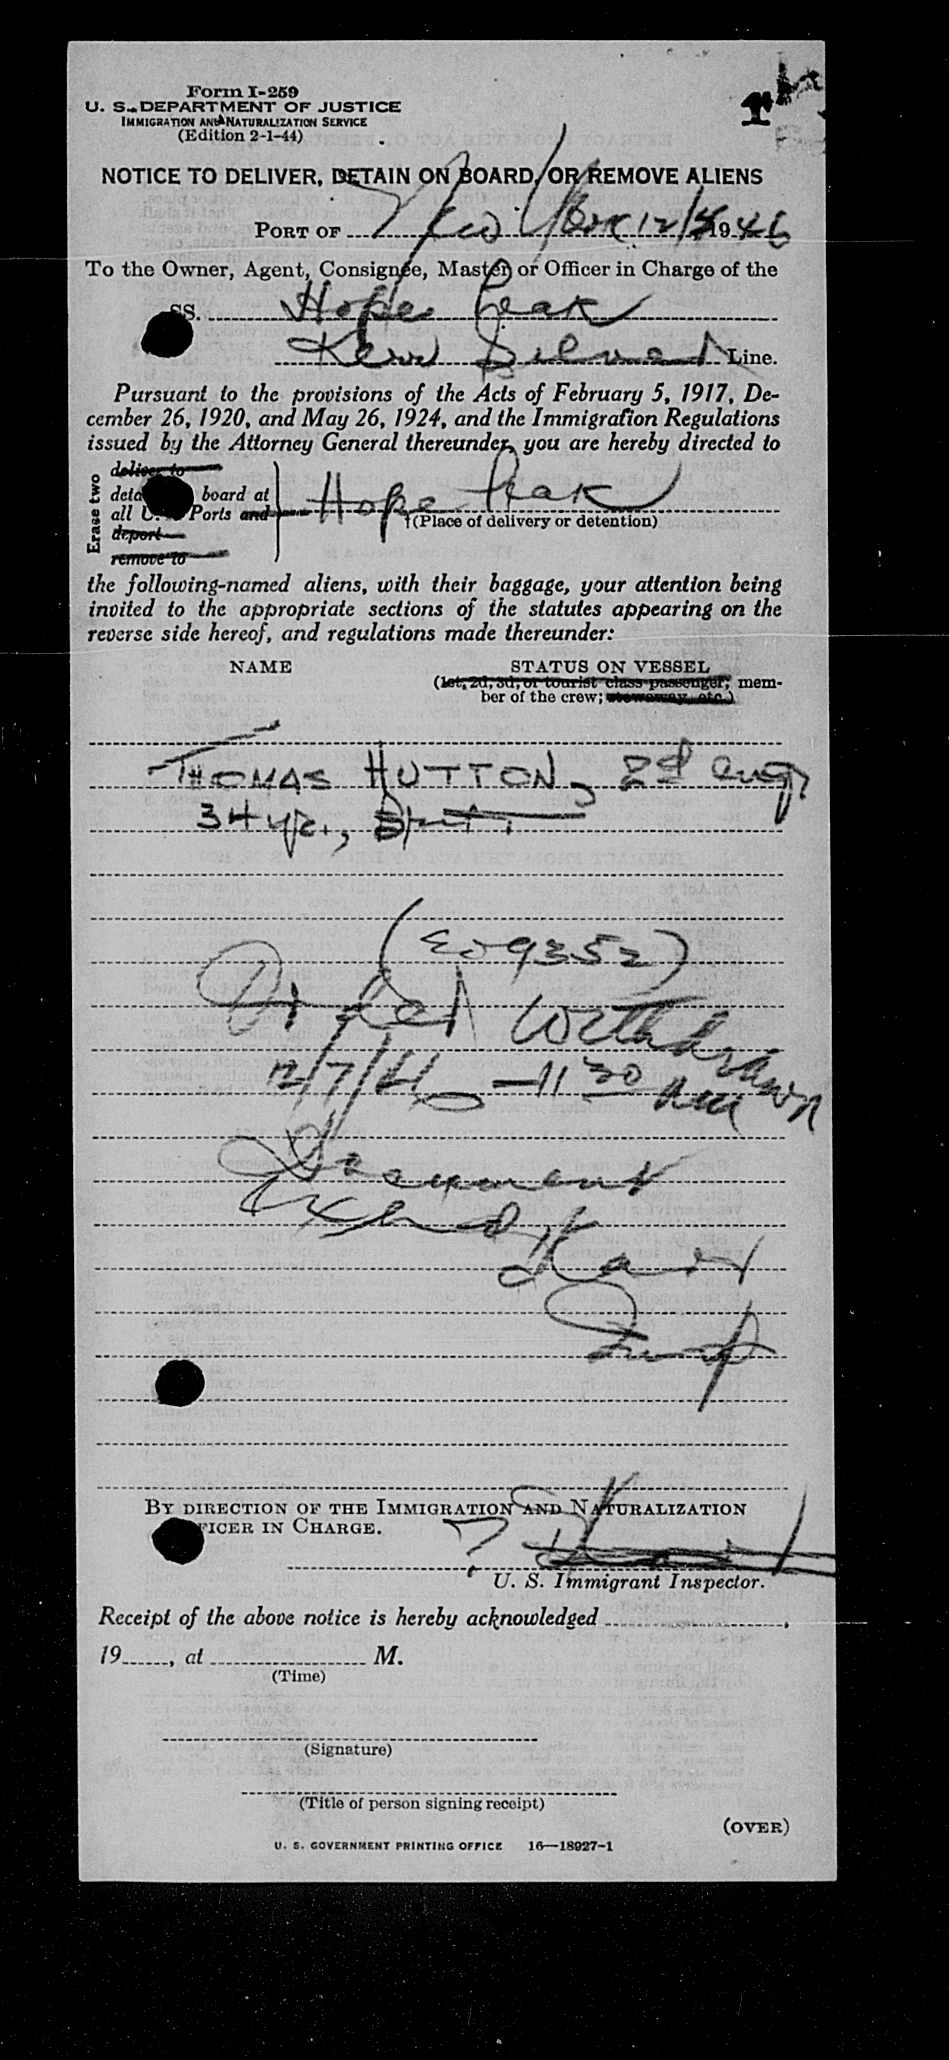 Form I-259
U. S. DEPARTMENT OF JUSTICE
IMMIGRATION AND NATURALIZATION SERVICE
(Edition 2-1-44)
NOTICE TO DELIVER, DETAIN ON BOARD, OR REMOVE ALIENS
PORT OF New York 12/ 1946
To the Owner, Agent, Consignee, Master, or Officer in Charge of the
SS. Hope Peak
Kerr Silver Line.
Pursuant to the provisions of the Acts of February 5, 1917, De-
cember 26, 1920, and May 26, 1924, and the Immigration Regulations
issued by the Attorney General thereunder, you are hereby directed to
Erase two
deliver to
board at
all Ports and
deport
remove to
Hope Peak
(Place of delivery or detention)
the following-named aliens, with their baggage, your attention being
invited to the appropriate sections of the statutes appearing on the
reverse side hereof, and regulations made thereunder:
NAME STATUS ON VESSEL
(1st, 2d, 3d, or tourist class passenger; mem-
ber of the crew; stowaway, etc.)
THOMAS HUTTON, 2d Engr
34 yr., Brit.
Withdrawn
12/7/46 - 11 30 AM
Document
Insp
BY DIRECTION OF THE IMMIGRATION AND NATURALIZATION
OFFICER IN CHARGE.
U. S. Immigrant Inspector.
Receipt of the above notice is hereby acknowledged ,
19 , at M.
(Time)
(Signature)
(Title of person signing receipt)
(OVER)
U. S. GOVERNMENT PRINTING OFFICE 16—18927-1